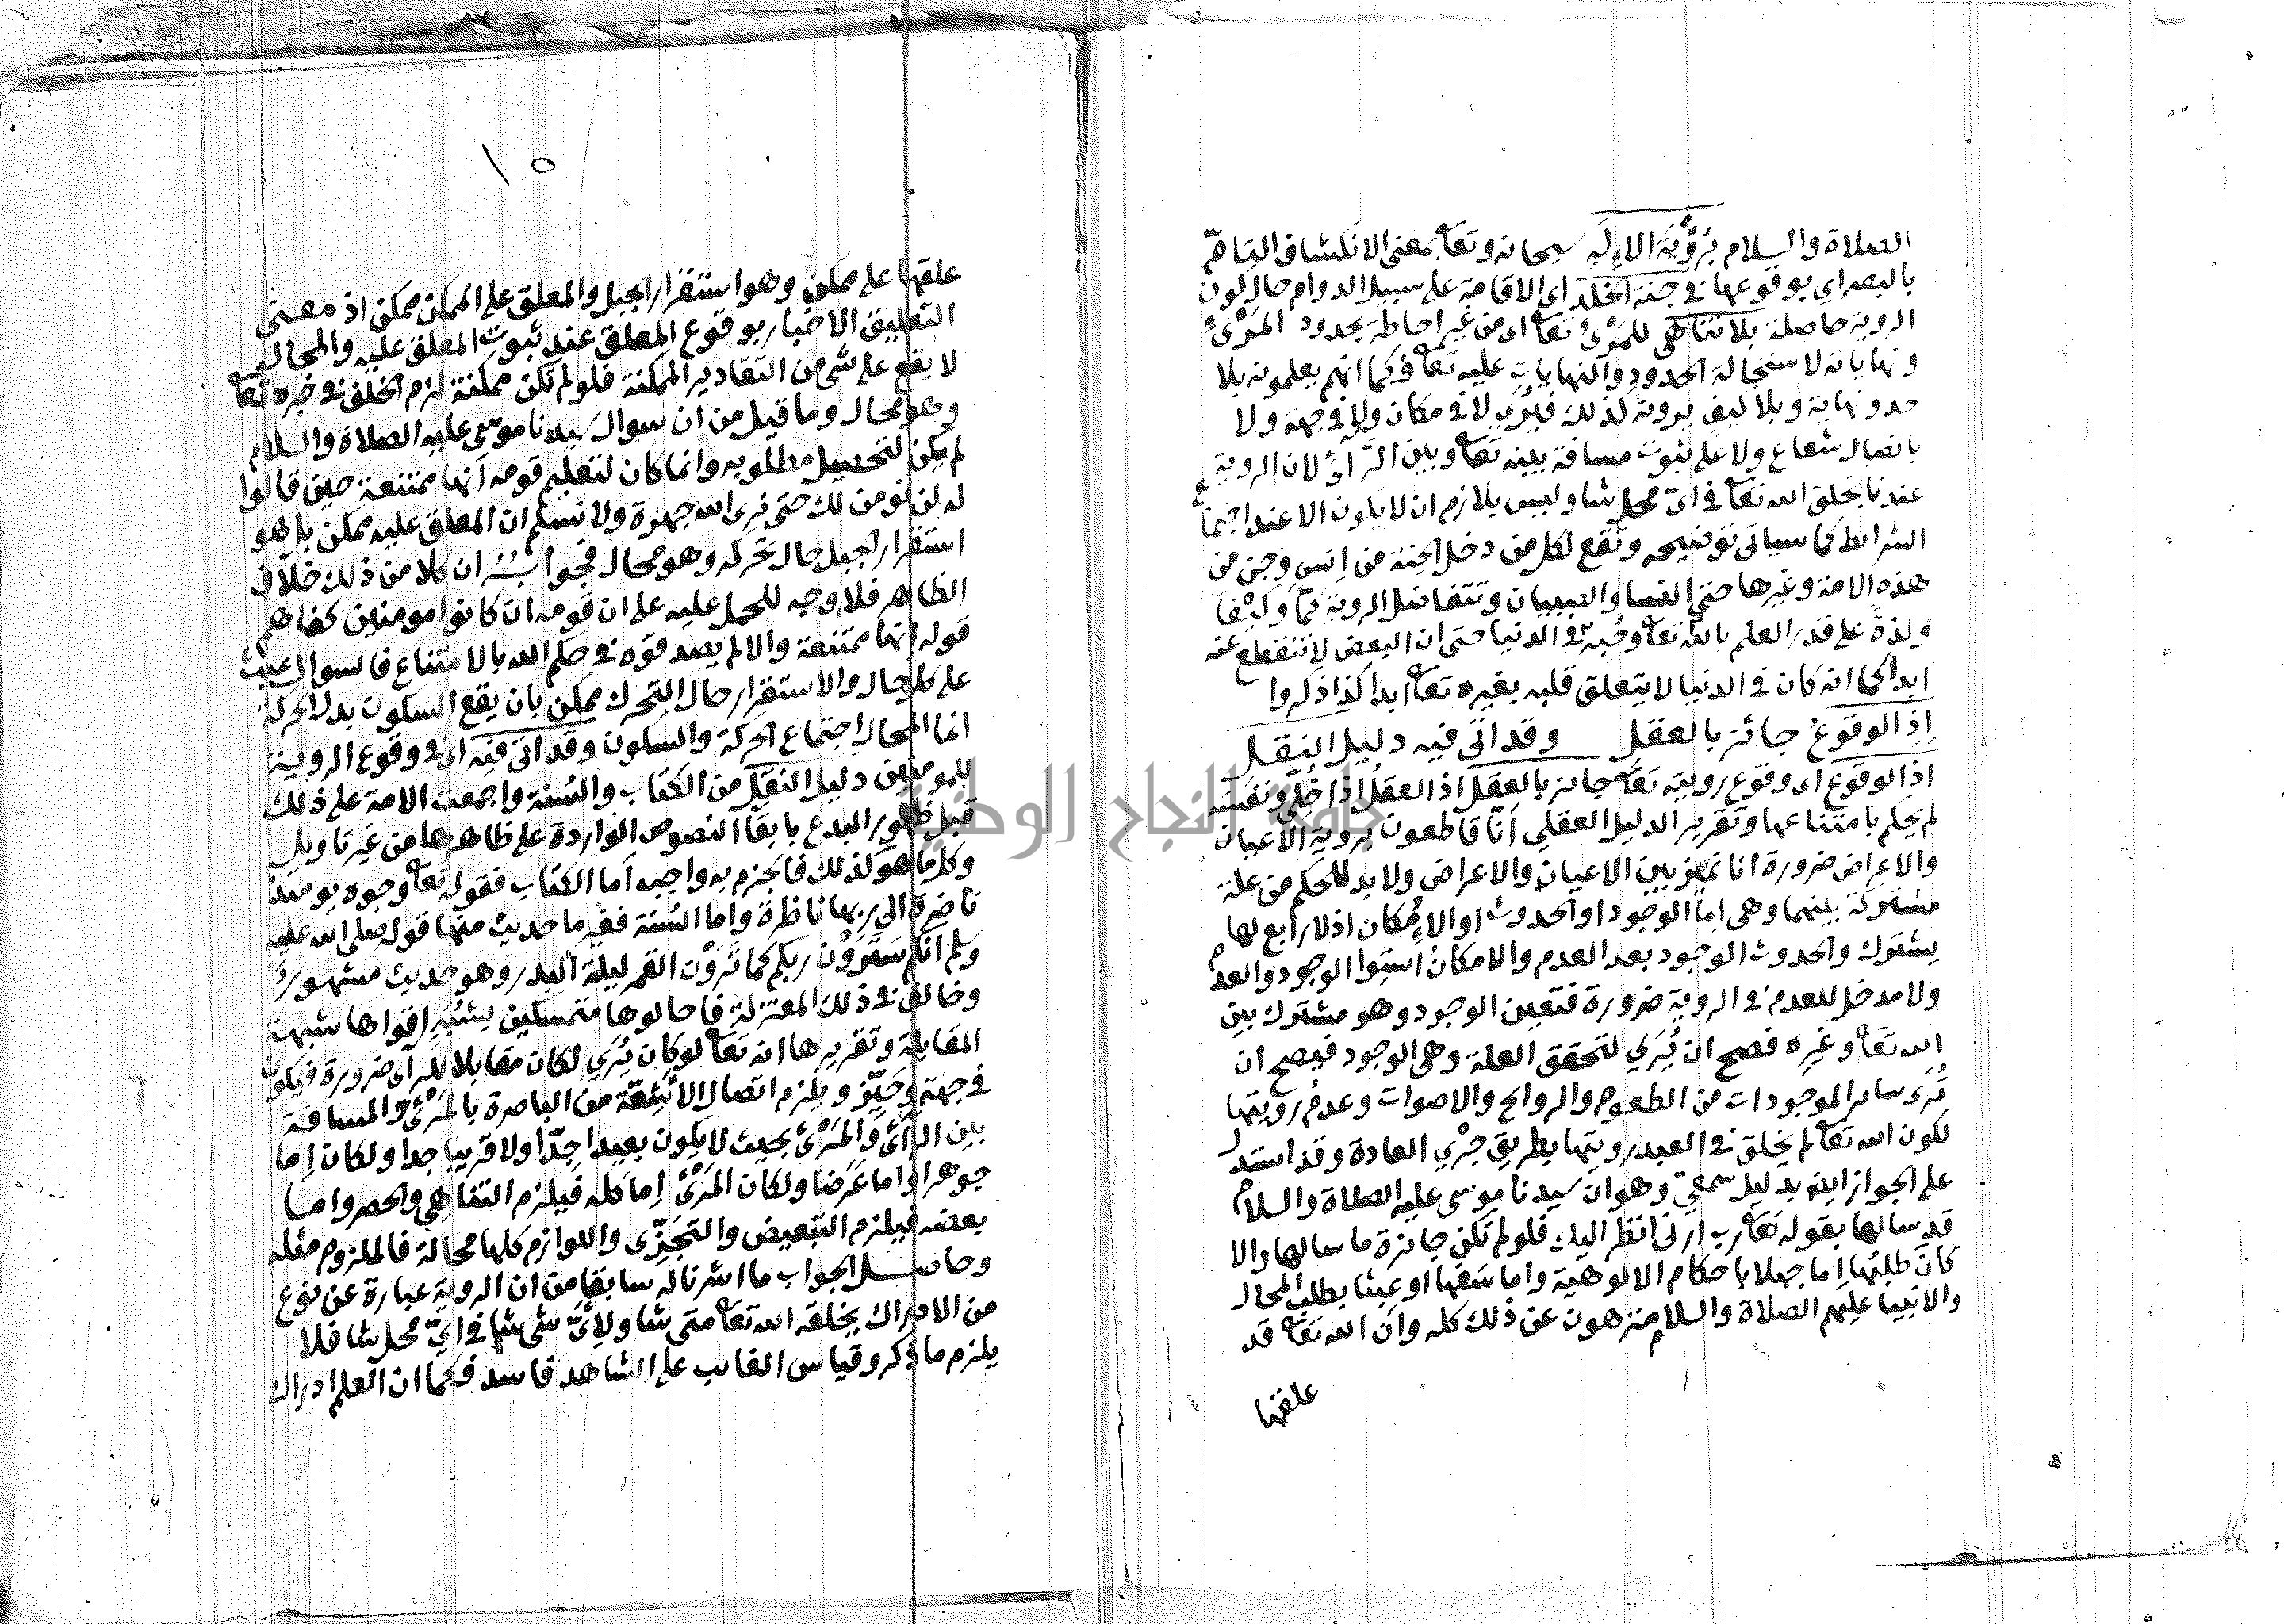 الصلاة والسلام برُؤْيَة الاِلَهِ سبحانه وتعا بمعنى الانكشاف التام
بالبصر اي بوقوعها في جنة الخلد اي الاقامة على سبيل الدوام حال كون
الروية حاصلة بلا تناهي للمَرْئيّ تعا اى من غير احاطة بحدود المَرْئيّ
ونهاياته لاستحالة الحدود والنهايات عليه تعا فكما انهم يعلمونه بلا
حد ونهاية وبلا كيف يرونه كذلك فيُرَى لا في مكان ولا في جهة ولا
باتصال شعاع ولا على ثبوت مسافة بينه تعا وبين الرَّاءِ لان الروية
عندنا بخلق الله تعا في اىّ محل شا وليس يلازم ان لا يكون الا عند اجتماع
الشرايط كما سياتى توضيحه وتقع لكل من دخل الجنة من اِنسٍ وجن من
هذه الامة وغيرها حتي النسا والصبيان وتتفاضل الروية كمّا وكيْفا
ولذة على قدر العلم بالله تعا وحُبه في الدنيا حتى ان البعض لا تنقطع عنه
ابدا كما انه كان في الدنيا لا يتعلق قلبه بغيره تعا ابدا كذا ذكروا
اِذِ الوقوعُ جائز بالعقل وقد اتى فيه دليل النقل
اذ الوقوع اى وقوع رويته تعا جائز بالعقل اذ العقل اذا خُلّى ونفسَه
لم يحكم بامتناعها وتقرير الدليل العقلي أنّا قاطعون بروية الاعيان
والاعراض ضرورة انا نميز بين الاعيان والاعراض ولا بد للحكم من علة
مشتركة بينهما وهى اما الوجود او الحدوث او الاِمْكان اذ لا رابع لها
يشترك والحدوث الوجود بعد العدم والامكان استوا الوجود والعدم
ولا مدخل للعدم في الروية ضرورة فتعين الوجود وهو مشترك بين
الله تعا وغيره فصح ان يُرَي لتحقق العلة وهى الوجود فيصح ان
تُرَى ساير الموجودات من الطعوم والروايح والاصوات وعدم رويتها
لكون الله تعا لم يخلق في العبد رويتها بطريق جَرْي العادة وقد استدل
على الجواز ايضا بدليل سمعيّ وهو ان سيدنا موسى عليه الصلاة والسلام
قد سالها بقوله تعا رب ارنى انظر اليك فلو لم تكن جايزة ما سالها والا
كان طلبُها اِما جهلا باحكام الالوهية واما سَفَها او عبثا بطلب المحال
والانبيا عليهم الصلاة والسلام منزهون عن ذلك كله وان الله تعا قد
علقها
١٥
علقها على ممكن وهو استقرار الجبل والمعلق على الممكن ممكن اذ معنى
التعليق الاخبار بوقوع المعلق عند ثبوت المعلق عليه والمحال
لا يقع على شى من التقادير الممكنة فلو لم تكن ممكنة لزم الخلف في خبره تعا
وهو محال وما قيل من ان سوال سيدنا موسى عليه الصلاة والسلام
لم يكن لتحصيل مطلوبه وانما كان لتعليم قومه أنها ممتنعة حين قالوا
له لن نومن لك حتى نرى الله جهرة ولا نسلم ان المعلق عليه ممكن بل هو
استقرار الجبل حال تحركه وهو محال فجوابُه ان كلا من ذلك خلاف
الظاهر فلا وجه للحمل عليه على ان قومه ان كانوا مومنين كفاهم
قوله انها ممتنعة والا لم يصدقوه في حكم الله بالامتناع فالسوال عبث
على كل حال والاستقرار حال التحرك ممكن بان يقع السكون بدل الحركة
انما المحال اجتماع الحركة والسكون وقد اتى فيه اى في وقوع الروية
للمومنين دليل النقل من الكتاب والسُنة واجمعت الامة على ذلك
قبل ظهور البدع بابقا النصوص الواردة على ظاهرها من غير تاويل
وكل ما هو كذلك فالجزم به واجب أما الكتاب فقوله تعا وجوه يومئذ
ناضرة الى ربها ناظرة واما السُنة فغير ما حديث منها قوله صلى الله عليه
وسلم انكم سَتَرَوْن ربكم كما تَرَوْن القمر ليلة البدر وهو حديث مشهور
وخالف في ذلك المعتزلة فاحالوها متمسكين بشُبَهٍ اقواها شبهة
المقابلة وتقريرها انه تعا لو كان يُرَي لكان مقابلا للراى ضرورة فيكون
في جهة وحَيّز ويلزم اتصال الأشِعّة من الباصرة بالمَرْئيّ والمسافة
بين الرائ والمَرْئيّ بحيث لا يكون بعيدا جدّا ولا قريبا جدا ولكان اِما
جوهرا واما عَرَضا ولكان المَرْئىّ اِما كله فيلزم التناهي والحصر واما
بعضه فيلزم التبعيض والتجَزّى واللوازم كلها محالة فالملزوم مثله
وحاصل الجواب ما اشرنا له سابقا من ان الروية عبارة عن نوع
من الادراك يخلقه الله تعا متى شا ولِأىّ شى شا في ايّ محل شا فلا
يلزم ما ذكر وقياس الغايب على الشاهد فاسد فكما ان العلم ادراك
جامعة النجاح الوطنية